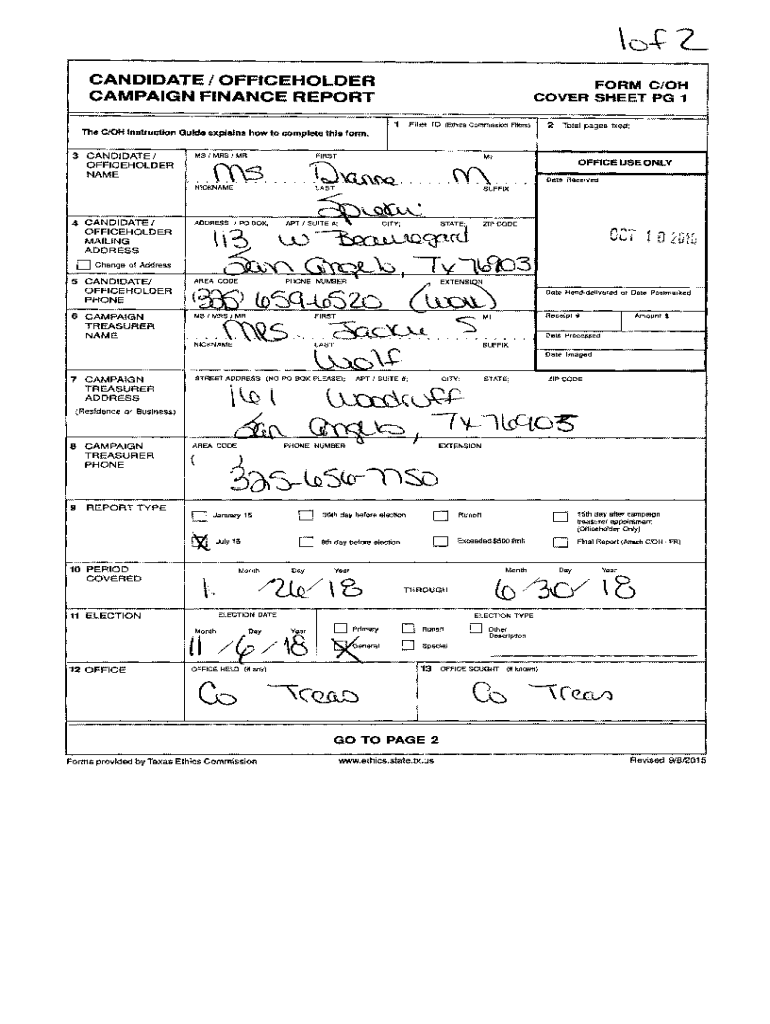 1 of 2
CANDIDATE / OFFICEHOLDER
CAMPAIGN FINANCE REPORT
FORM C/OH
COVER SHEET PG 1
The C/OH Instruction Guide explains how to complete this form.
1 Filer ID (Ethics Commission Filers)
2 Total pages filed:
3 CANDIDATE / OFFICEHOLDER NAME
MS / MRS / MR FIRST MI
MS Dianna M
NICKNAME LAST SUFFIX
OFFICE USE ONLY
Date Received
OCT 10
4 CANDIDATE / OFFICEHOLDER MAILING ADDRESS
Change of Address
ADDRESS / PO BOX; APT / SUITE #; CITY; STATE; ZIP CODE
113 W Beauregard
San Angelo, Tx 76903
5 CANDIDATE/ OFFICEHOLDER PHONE
AREA CODE PHONE NUMBER EXTENSION
(325) 659-6520
Date Hand-delivered or Date Postmarked
6 CAMPAIGN TREASURER NAME
MS / MRS / MR FIRST MI
MRS Jackie S
NICKNAME LAST SUFFIX
Wolf
Receipt # Amount $
Date Processed
Date Imaged
7 CAMPAIGN TREASURER ADDRESS
(Residence or Business)
STREET ADDRESS (NO PO BOX PLEASE); APT / SUITE #; CITY; STATE; ZIP CODE
161 Woodruff
San Angelo, Tx 76903
8 CAMPAIGN TREASURER PHONE
AREA CODE PHONE NUMBER EXTENSION
( )
325-656-7750
9 REPORT TYPE
January 15 30th day before election Runoff 15th day after campaign treasurer appointment (Officeholder Only)
X July 15 8th day before election Exceeded $500 limit Final Report (Attach C/OH - FR)
10 PERIOD COVERED
Month Day Year Month Day Year
1 / 26 / 18 THROUGH 6 / 30 / 18
11 ELECTION
ELECTION DATE ELECTION TYPE
Month Day Year
11 / 6 / 18
Primary Runoff Other Description
X General Special
12 OFFICE
OFFICE HELD (if any)
Co Treas
13 OFFICE SOUGHT (if known)
Co Treas
GO TO PAGE 2
Forms provided by Texas Ethics Commission www.ethics.state.tx.us Revised 9/8/2015